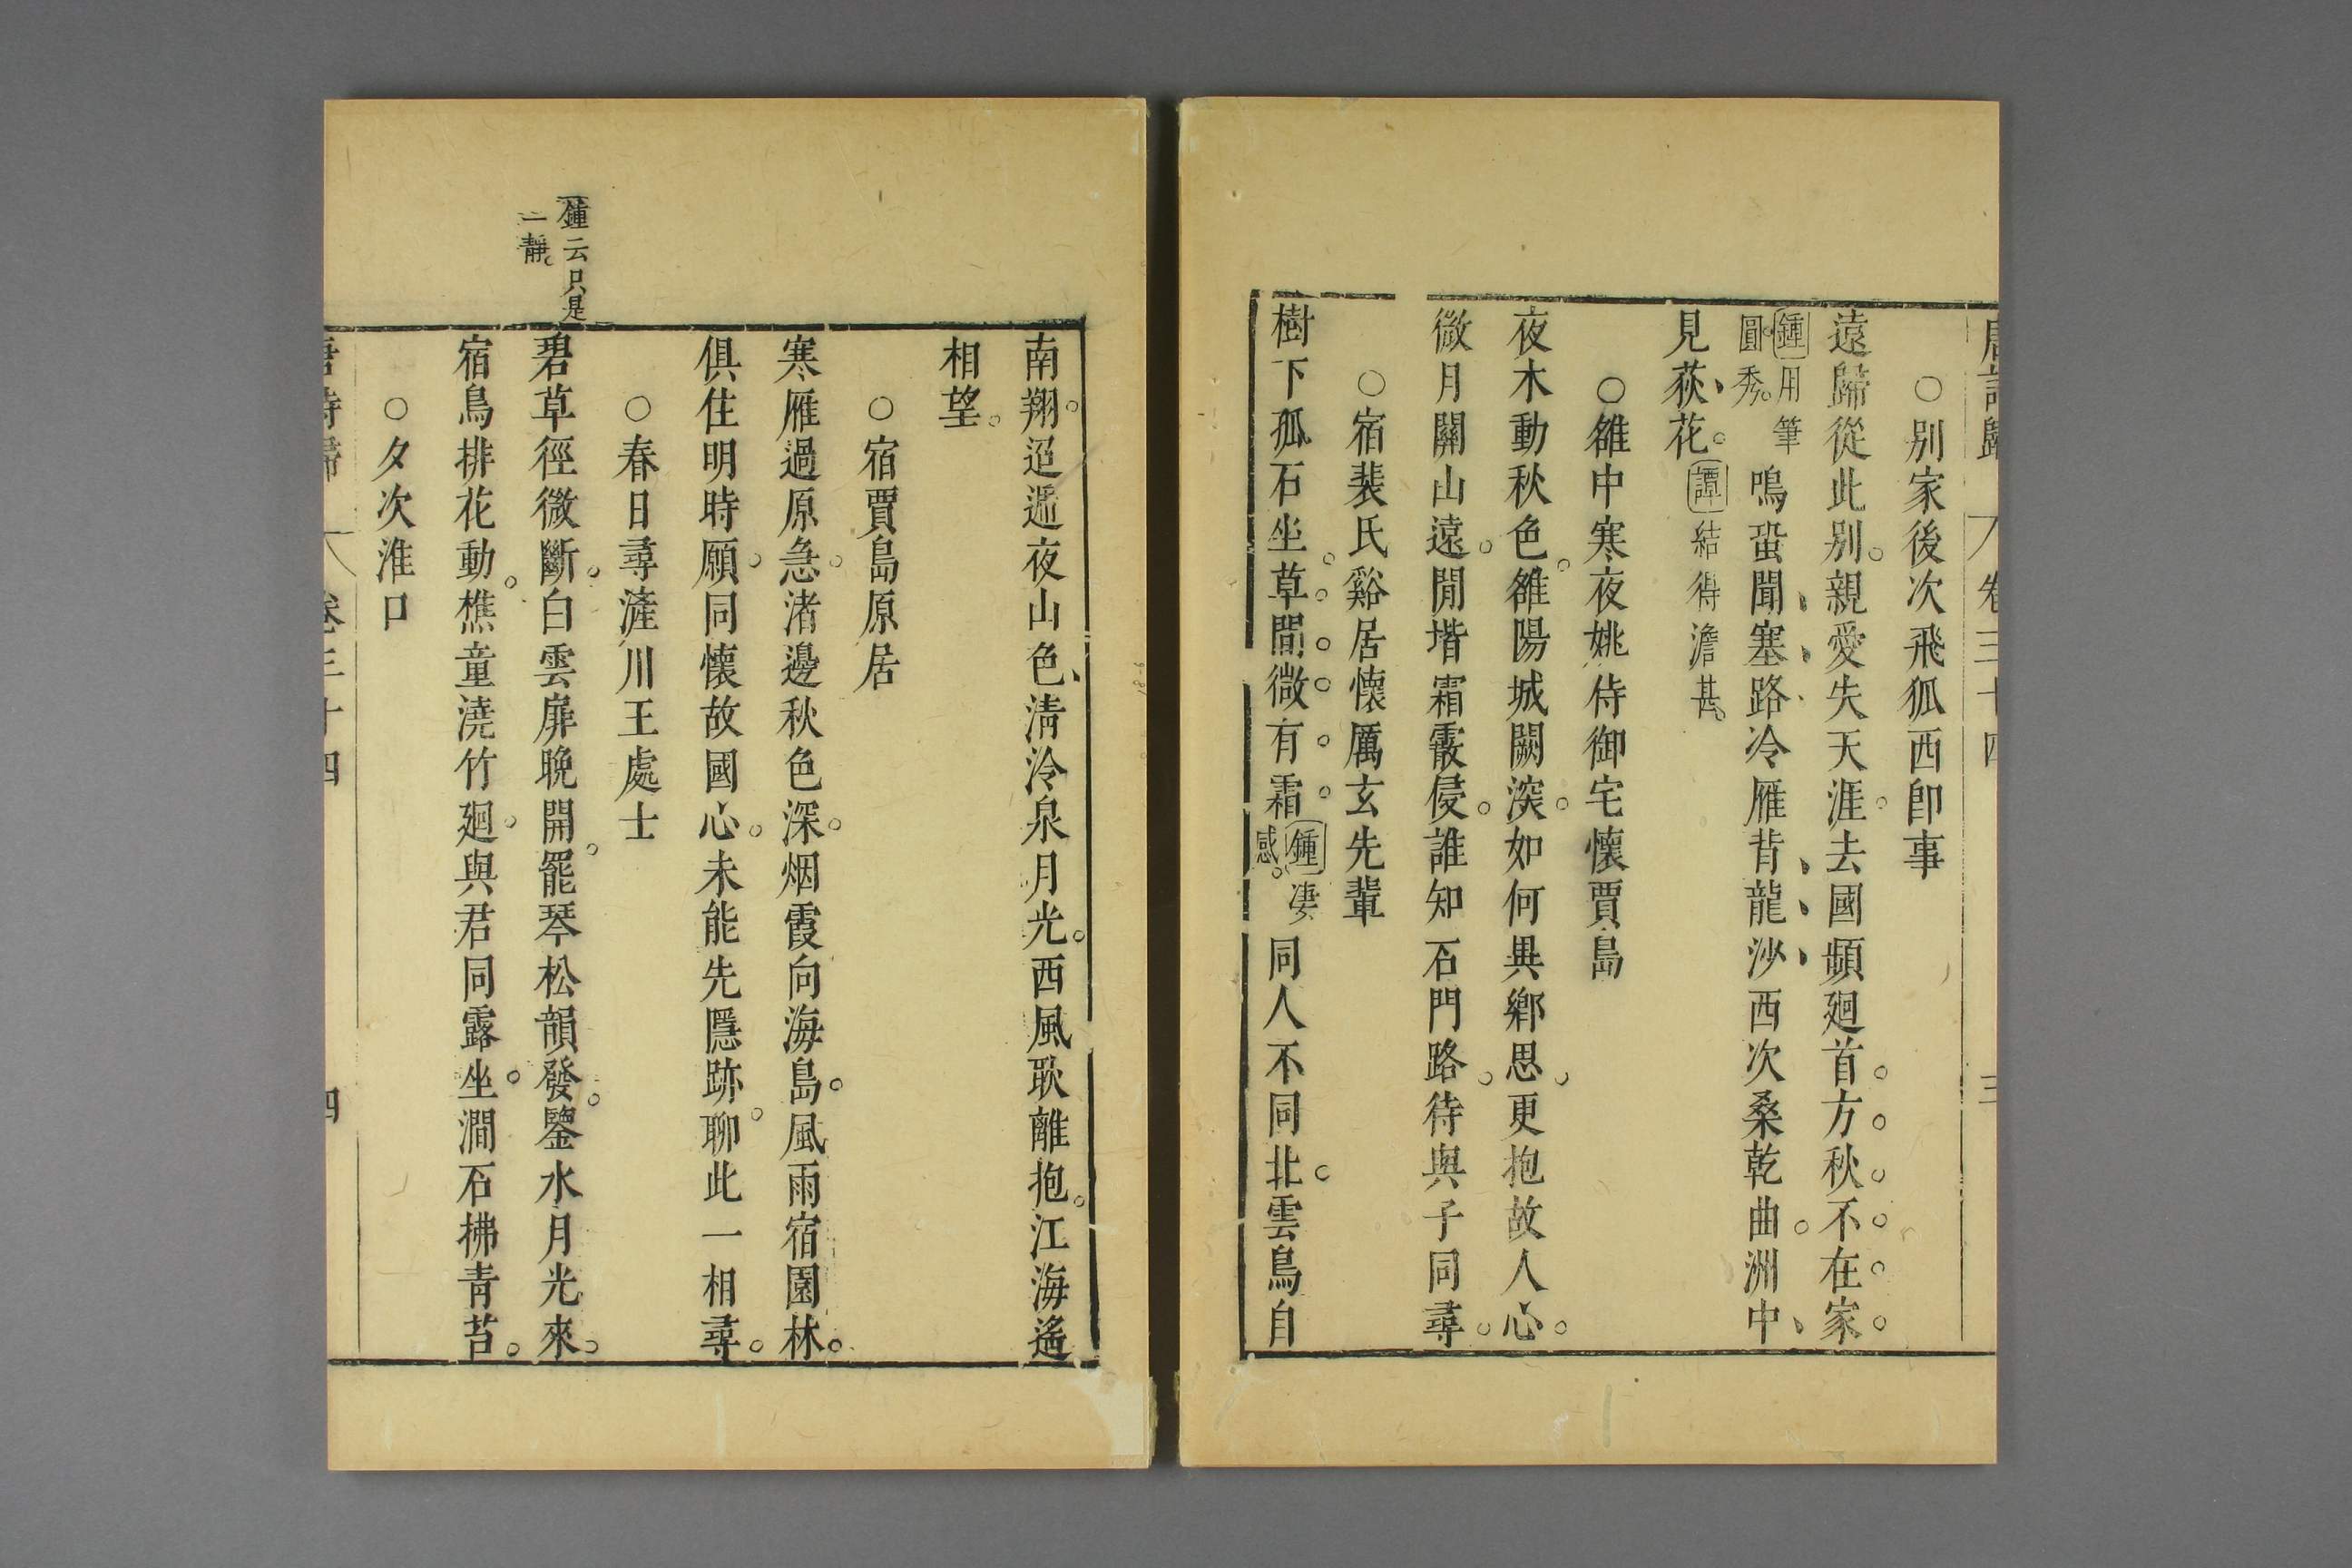 唐詩歸 卷三十四 三
○別家後次飛狐西卽事
遠歸從此別親愛失天涯去國頻廻首方秋不在家
鍾用筆圓秀鳴蛩聞塞路冷雁背龍沙西次桑乾曲洲中
見荻花譚結得澹甚
○雒中寒夜姚侍御宅懷賈島
夜木動秋色雒陽城闕深如何異鄉思更抱故人心
微月關山遠閒堦霜霰侵誰知石門路待與子同尋
○宿裴氏谿居懷厲玄先輩
樹下孤石坐草間微有霜鍾凄感同人不同北雲鳥自
南翔迢遞夜山色清泠泉月光西風耿離抱江海遙
相望
○宿賈島原居
寒雁過原急渚邊秋色深烟霞向海島風雨宿園林
俱住明時願同懷故國心未能先隱跡聊此一相尋
○春日尋滻川王處士
鍾云只是
一靜
碧草徑微斷白雲扉晚開罷琴松韻發鑒水月光來
宿鳥排花動樵童澆竹廻與君同露坐澗石拂青苔
○夕次淮口
唐詩歸 卷三十四 四